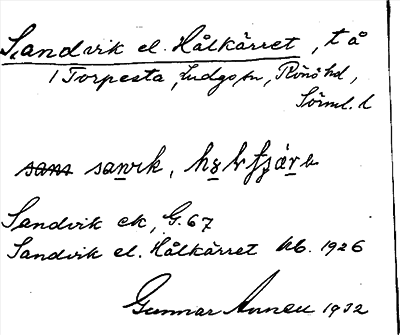 Sandvik el. Hålkärret, t å
/ Torpesta, Ludgo sn, Rönö hd,
Sörml. l
sanvik,
Sandvik ek, G. 67
Sandvik el. Hålkärret hb. 1926
Gunnar Annell 1932